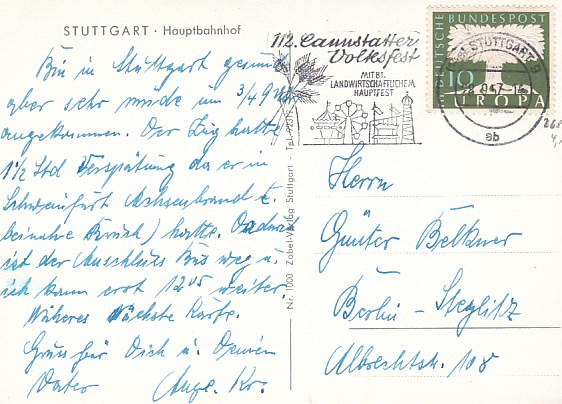 STUTTGART · Hauptbahnhof
Bin in Stuttgart gesund
aber sehr müde um 3/4 9 Uhr
angekommen. Der Zug hatte
1 1/2 Std Verspätung da er in
Schweinfurt Achsenbrand (
beinahe Bruch) hatte. Dadurch
ist der Anschluss Bus weg u.
ich kann erst 12 05 weiter.
Näheres nächste Karte.
Gruss für Dich u. Deinen
Vater Aug. Kr.
Nr. 1000 Zobel-Verlag Stuttgart - Tel.
112. Cannstatter
Volksfest
MIT 81.
LANDWIRTSCHAFTLICHEM
HAUPTFEST
STUTTGART 9
57-14
ab
DEUTSCHE BUNDESPOST
10
EUROPA
268
Herrn
Günter Belkner
Berlin - Steglitz
Albrechtstr. 108